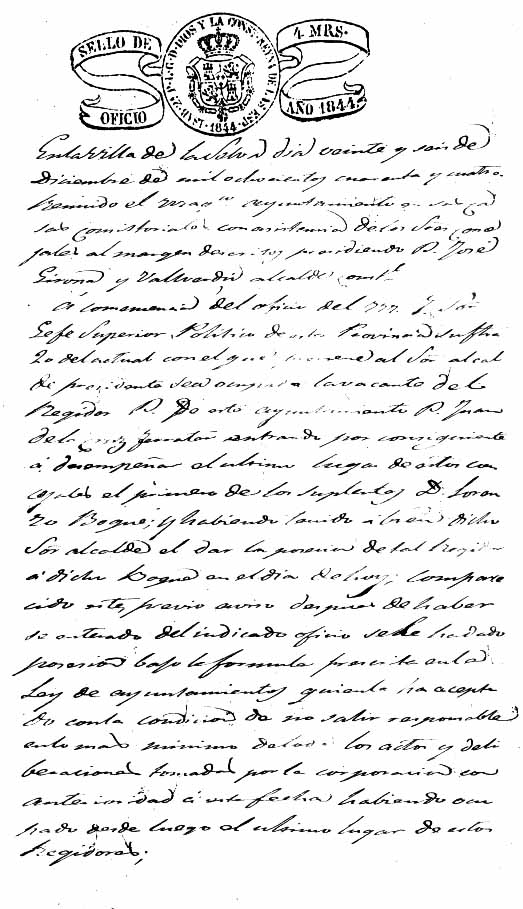 SELLO DE
OFICIO
YSAB. 2ª P. L. G. D. DIOS Y LA CONS. REYNA DE LAS ESP.
1844
4. MRS.
AÑO 1844.
En la Villa de la Selva dia veinte y seis de
Diciembre de mil ochocientos cuarenta y cuatro
Reunido el ayuntamiento en sus ca
sas consistoriales con asistencia de los Sres conce
jales al margen descritos, presidiendo D. José
Girona y Vallverdú alcalde constl
A consecuencia del oficio del M. Y. Sor
Gefe Superior Politico de esta Provincia su fha
20 del actual con el que previene al Sor alcal
de presidente sea ocupada la vacante del
Regidor D. De este ayuntamiento D. Juan
de la entrando por consiguiente
á desempeñar el ultimo lugar de estos con
cejales el primero de los suplentes D. Loren
zo Bogué; y habiendo tenido á bien dicho
Sor alcalde el dar la posesion de tal Regidor
á dicho Bogué en el dia de hoy; compare
cido este, previo aviso despues de haber
se enterado del indicado oficio se le ha dado
posesion bajo la formula prescrita en la
Ley de ayuntamientos quien la ha acepta
do con la condicion de no salir responsable
en lo mas minimo de los actos y deli
beraciones tomadas por la corporacion con
anterioridad á esta fecha habiendo ocu
pado desde luego el ultimo lugar de estos
Regidores;